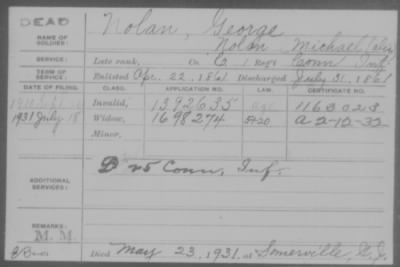 DEAD
Nolan, George
NAME OF SOLDIER:
Nolan, Michael
SERVICE: Late rank, Co. 1 Reg't Conn Inf.
TERM OF SERVICE: Enlisted Apr. 22, 1861 Discharged July 31, 1861
DATE OF FILING. CLASS. APPLICATION NO. LAW. CERTIFICATE NO.
Invalid, 1392635 1163023
1931 July 18 Widow, 1698274 A 2-12-32
Minor,
D 25 Conn. Inf.
ADDITIONAL SERVICES:
REMARKS:
M. M.
Died May 23, 1931, at Somerville, N.J.